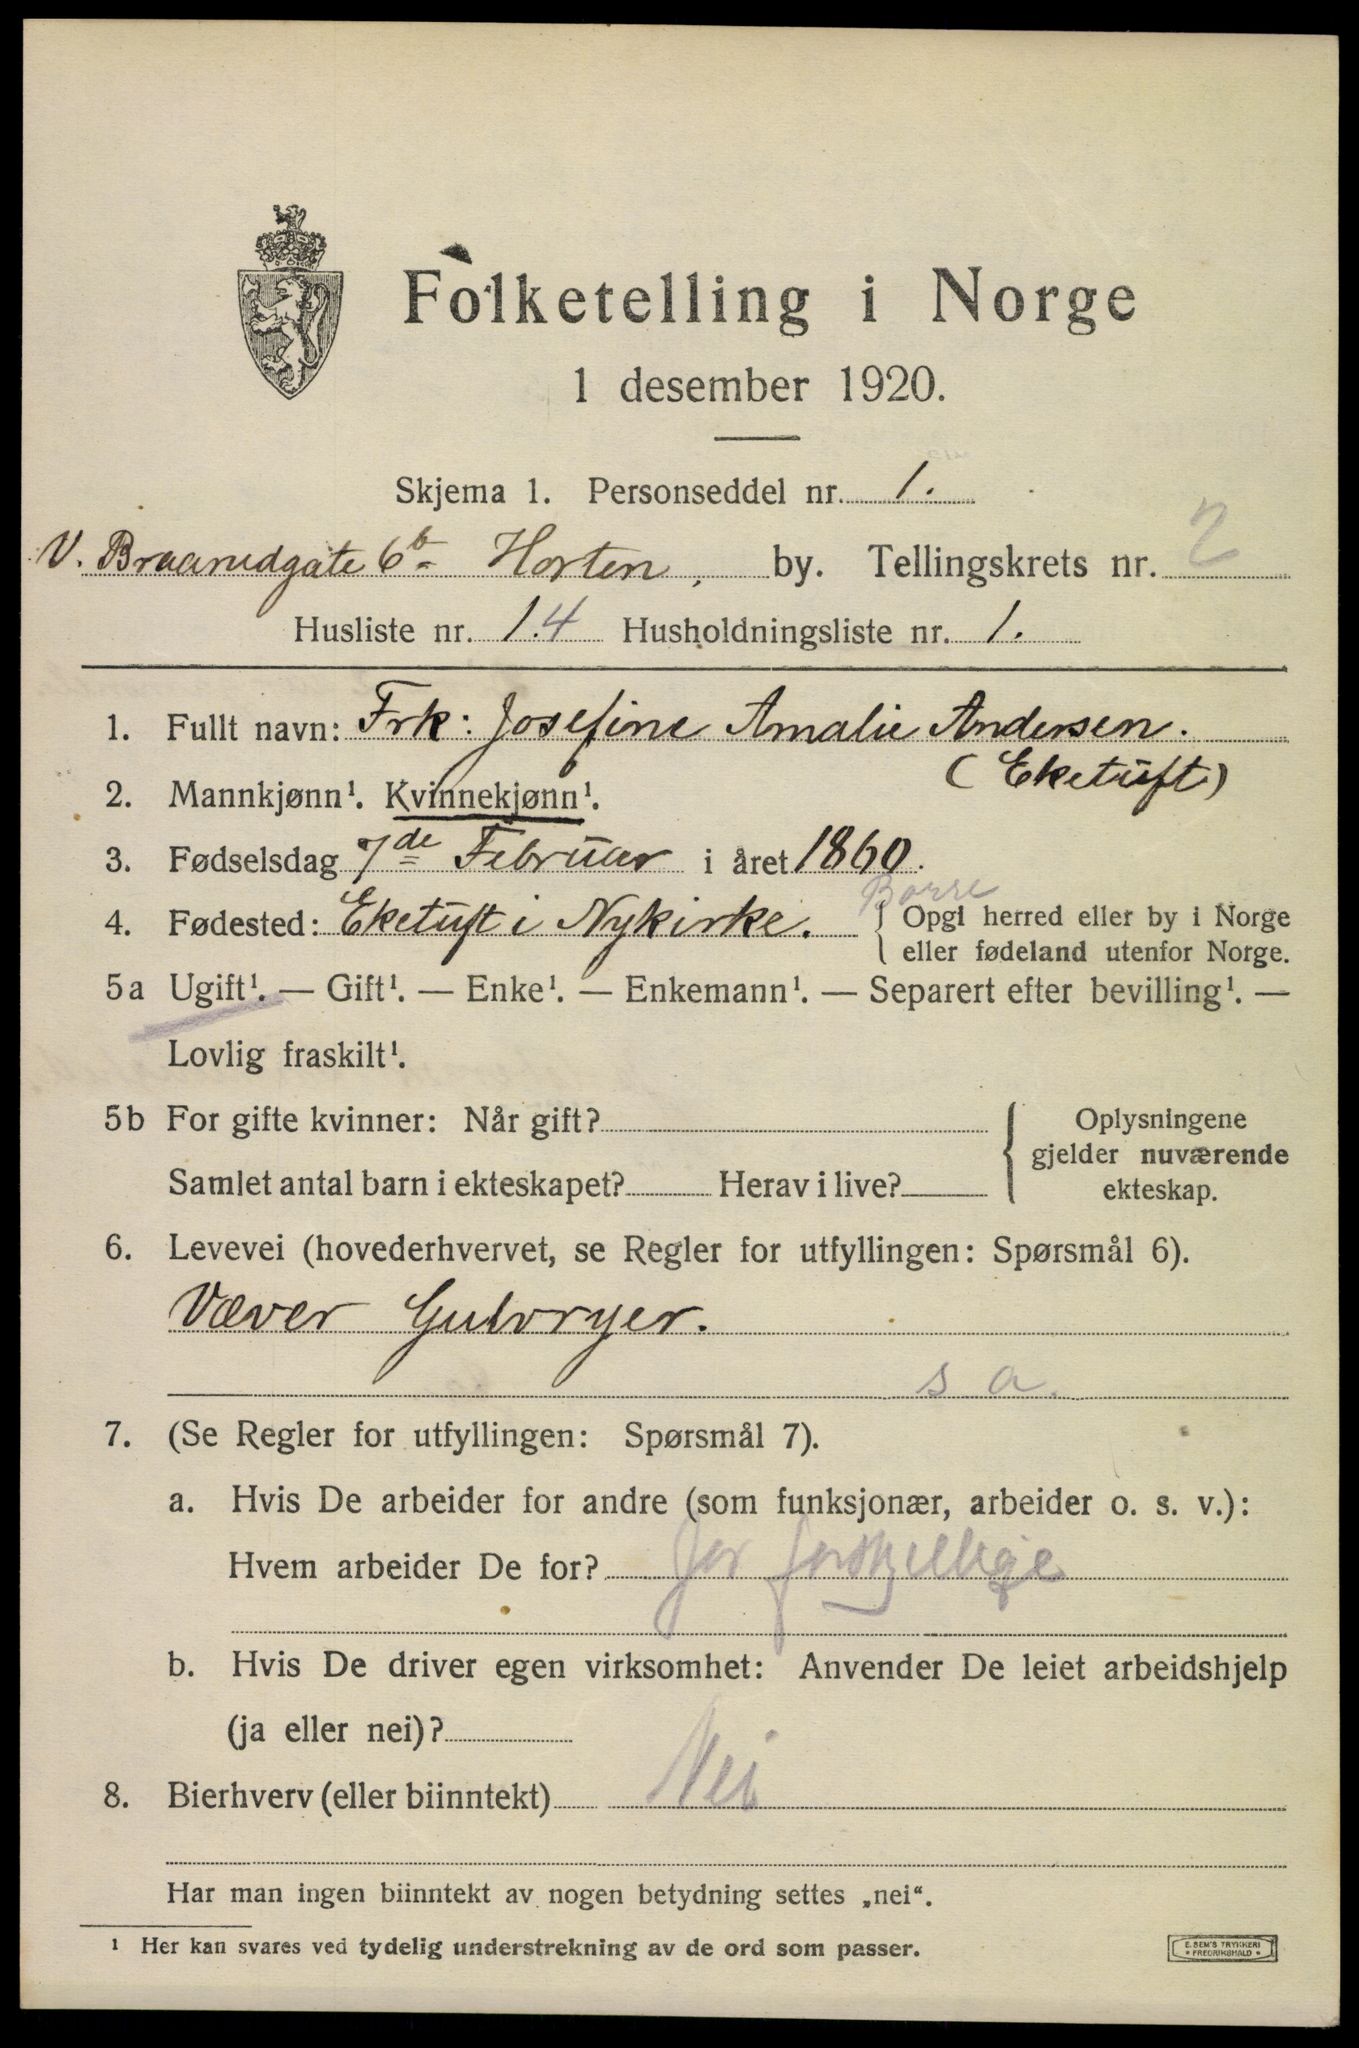 Folketelling i Norge
1 desember 1920.
Skjema 1. Personseddel nr. 1.
V. Braarudgate 6b Horten, by. Tellingskrets nr. 2
Husliste nr. 1.4 Husholdningsliste nr. 1.
1. Fullt navn: Frk: Josefine Amalie Andersen.
(Eketuft)
2. Mannkjønn¹. Kvinnekjønn¹.
3. Fødselsdag 7de Februar i året 1860.
Borre
4. Fødested: Eketuft i Nykirke. { Opgi herred eller by i Norge
eller fødeland utenfor Norge.
5a Ugift¹. — Gift¹. — Enke¹. — Enkemann¹. — Separert efter bevilling¹. —
Lovlig fraskilt¹.
5b For gifte kvinner: Når gift?
Samlet antal barn i ekteskapet? Herav i live?
Oplysningene
gjelder nuværende
ekteskap.
6. Levevei (hovederhvervet, se Regler for utfyllingen: Spørsmål 6).
Væver Gulvryer.
s a.
7. (Se Regler for utfyllingen: Spørsmål 7).
a. Hvis De arbeider for andre (som funksjonær, arbeider o. s. v.):
Hvem arbeider De for? for forskjellige
b. Hvis De driver egen virksomhet: Anvender De leiet arbeidshjelp
(ja eller nei)?
8. Bierhverv (eller biinntekt) Nei
Har man ingen biinntekt av nogen betydning settes „nei“.
¹ Her kan svares ved tydelig understrekning av de ord som passer.
E. SEM'S TRYKKERI
* FREDRIKSHALD *